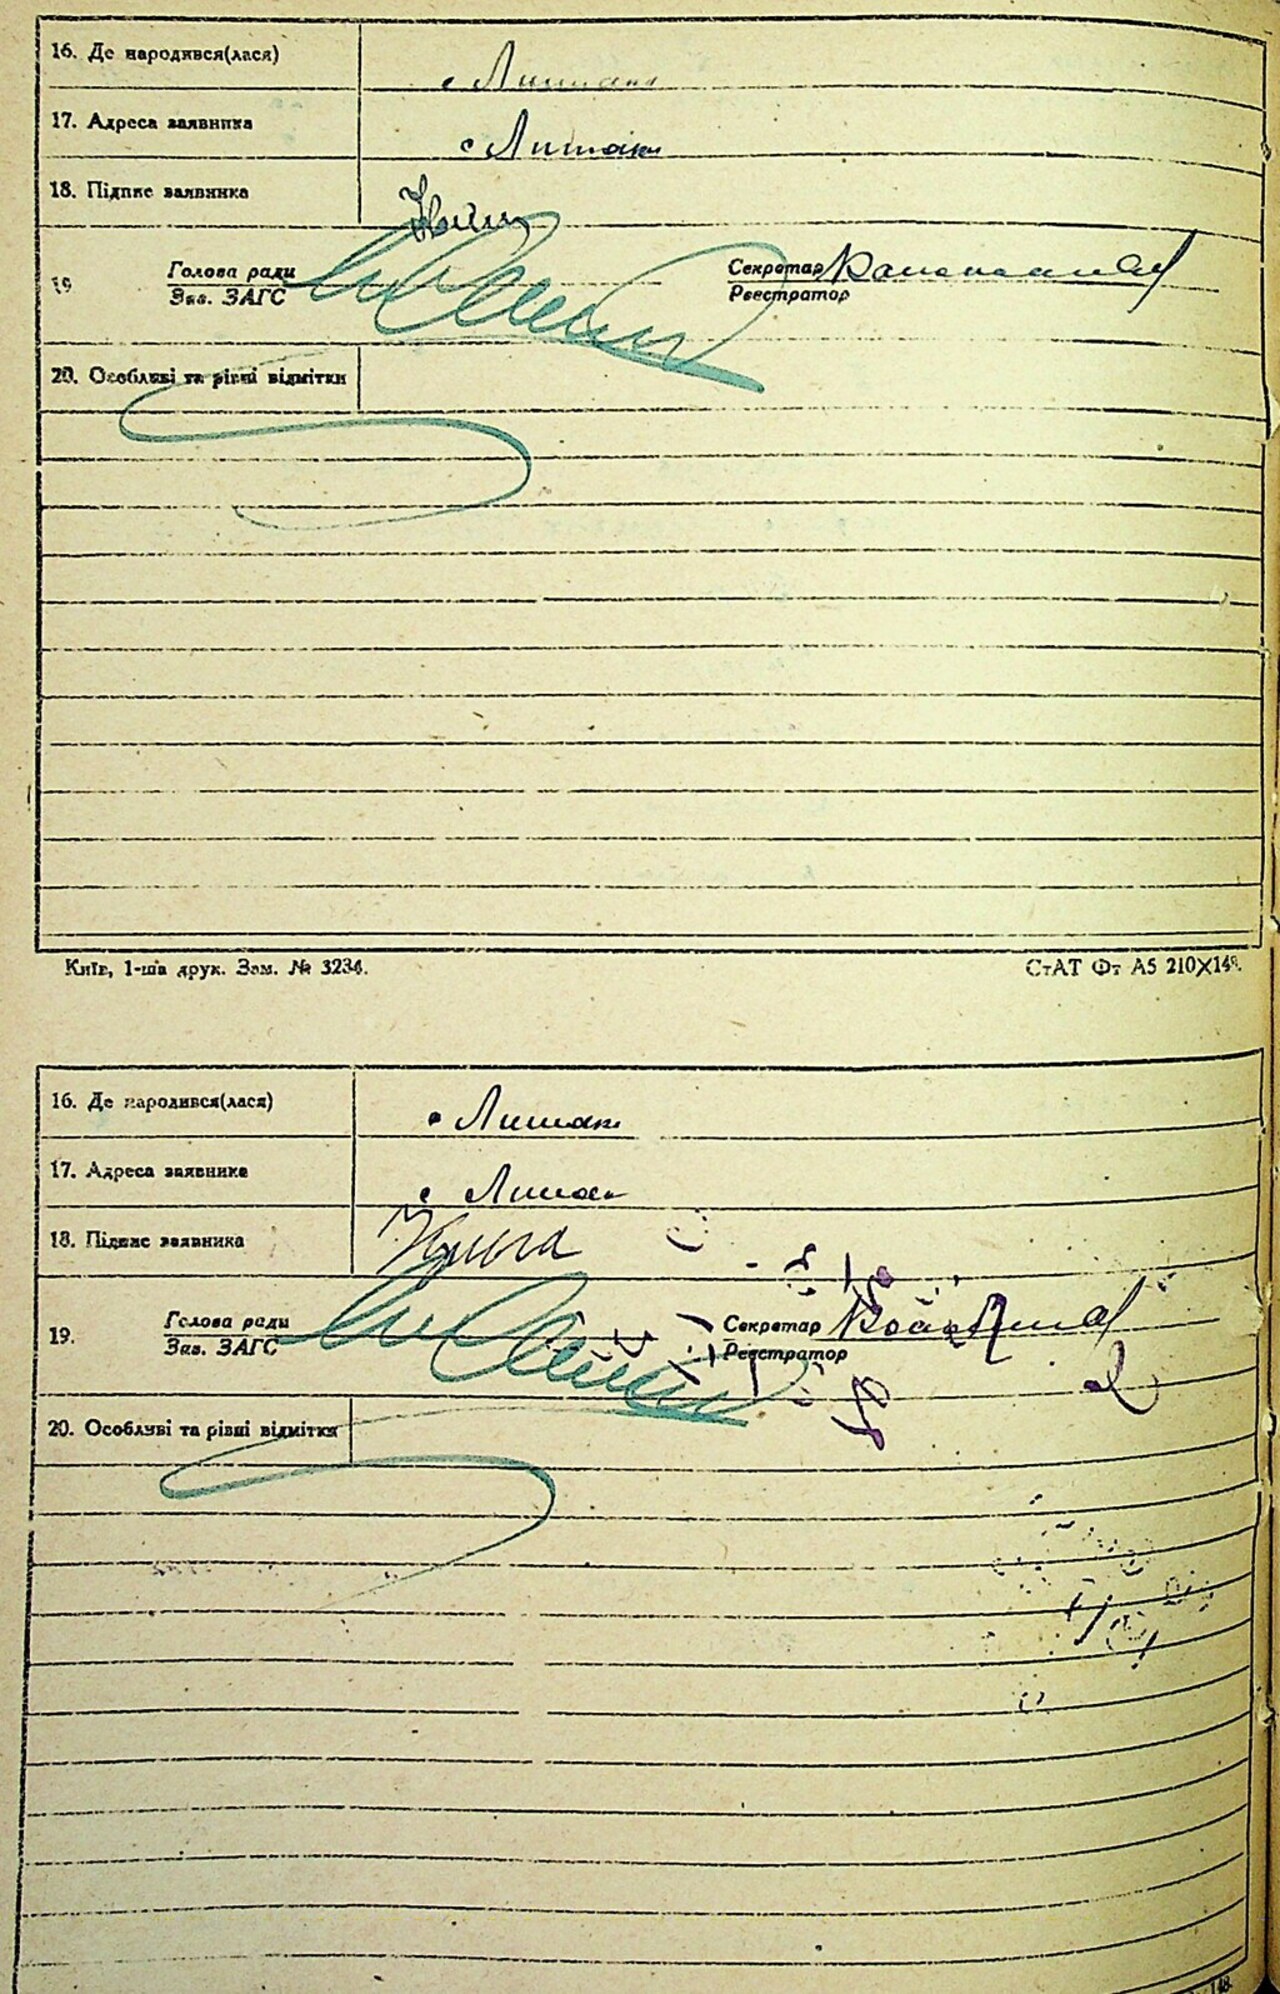 16. Де народився(лася)
с
17. Адреса заявника
с Лишаки
18. Підпис заявника
19
Голова ради
Зав. ЗАГС
Секретар
Реєстратор
20. Особливі та рівні відмітки
Київ, 1-ша друк. Зам. № 3234.
СтАТ Фт А5 210×148.
16. Де народився(лася)
с Лишаки
17. Адреса заявника
с
18. Підпис заявника
19.
Голова ради
Зав. ЗАГС
Секретар
Реєстратор
20. Особливі та рівні відмітки
148